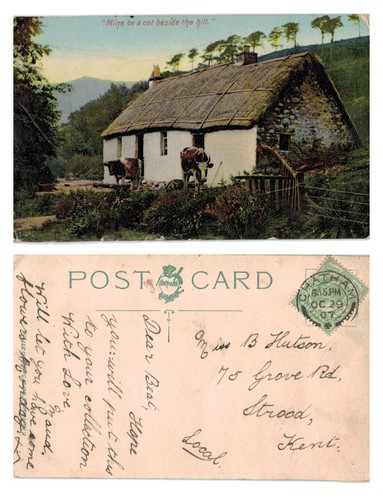 "Mine be a cot beside the hill."
POST CARD
CHATHAM
8.15 PM
OC 29
07
Dear Beat,
Hope
you will put this
to your collection
With Love
Gr
Maud.
Will let you have some
flowers
Miss B Hutson,
75 Grove Rd,
Strood,
Kent.
Local.